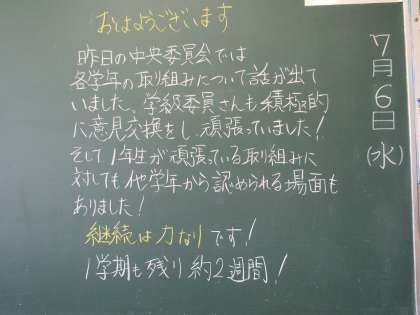 おはようございます
昨日の中央委員会では
各学年の取り組みについて話が出て
いました。学級委員さんも積極的
に意見交換をし、頑張っていました!
そして1年生が頑張っている取り組みに
対しても他学年から認められる場面も
ありました!
継続は力なりです!
1学期も残り約2週間!
7月6日(水)